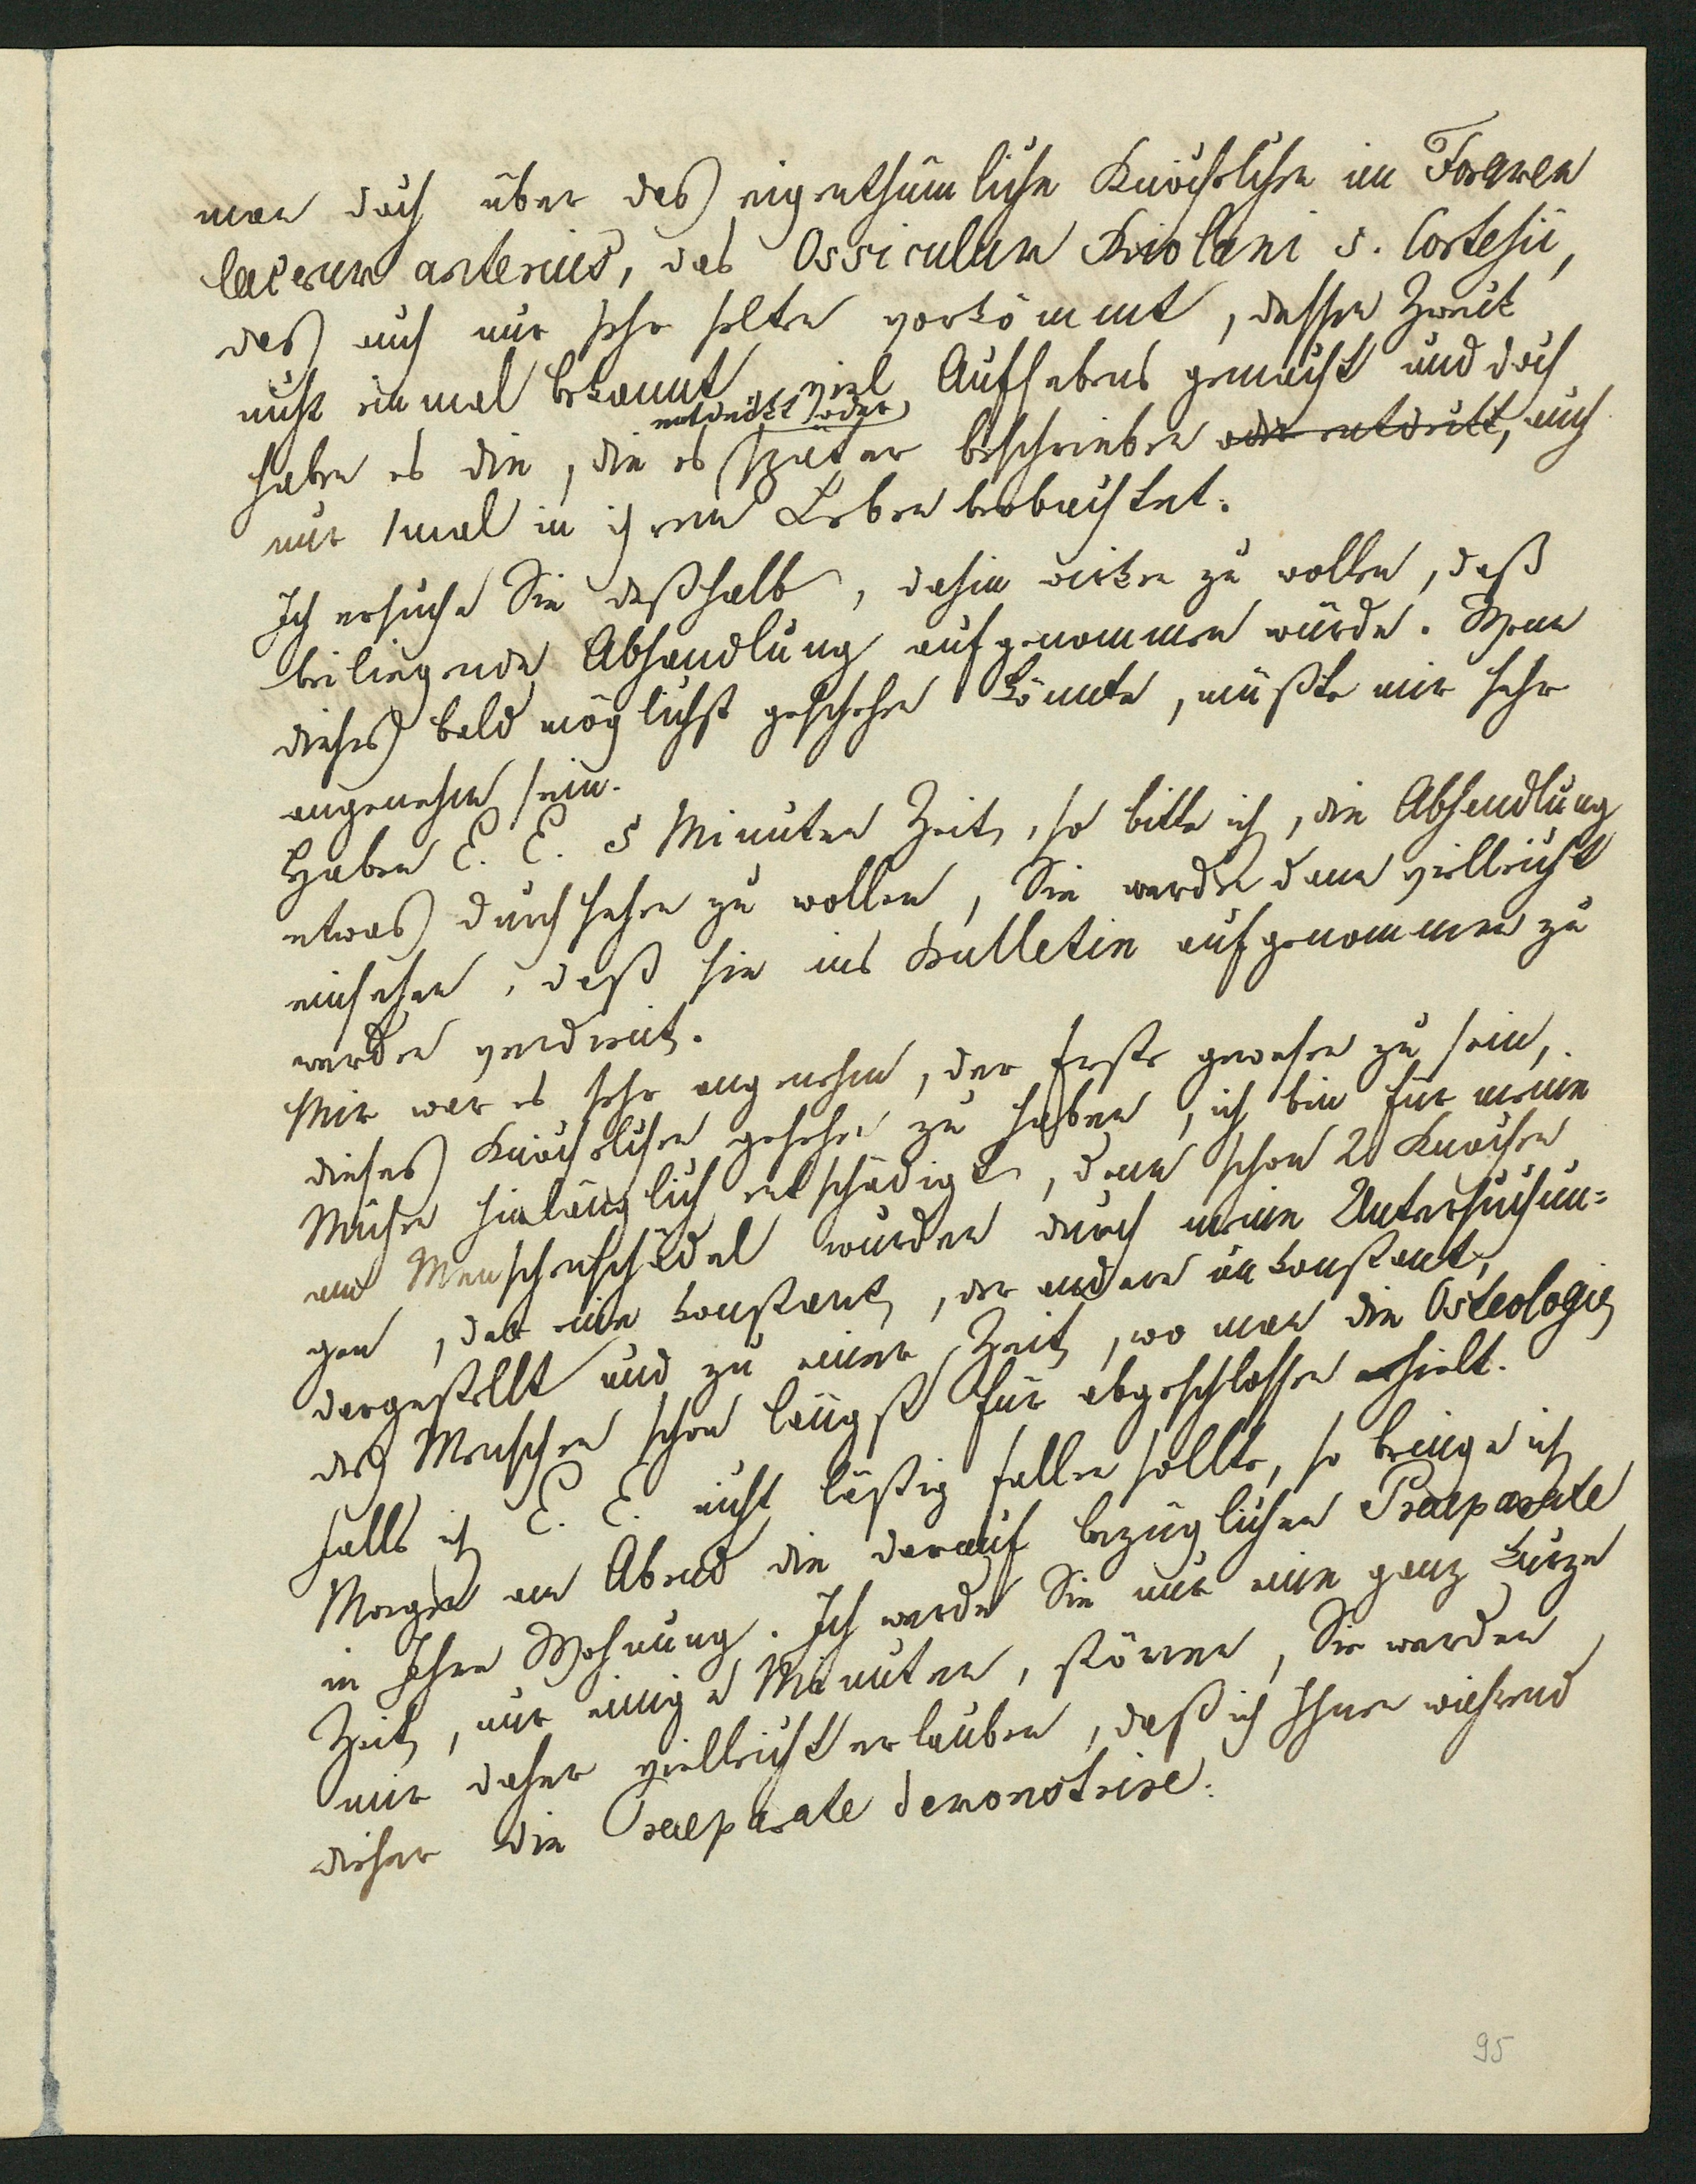 man doch über das eigenthümliche Knöchelchen im Foramen
lacerum anterius, das Ossiculum Riolani s. Cortesii,
das auch nur sehr selten vorkömmt, dessen Zweck
nicht einmal bekannt, viel Aufhebens gemacht und doch
entdeckt oder
haben es die, die es später beschrieben oder entdeckt, auch
nur 1mal in ihrem Leben beobachtet.
Ich ersuche Sie deßhalb, dahin wirken zu wollen, daß
beiliegende Abhandlung aufgenommen würde. Wenn
dieses bald möglichst geschehen könnte, müßte mir sehr
angenehm sein.
Haben E. E. 5 Minuten Zeit, so bitte ich, die Abhandlung
etwas durchsehen zu wollen, Sie werden dann vielleicht
einsehen, daß sie ins Bulletin aufgenommen zu
werden verdient.
Mir war es sehr angenehm, der Erste gewesen zu sein,
dieses Knöchelchen gesehen zu haben, ich bin für meine
Mühen hinlänglich entschädigt, denn schon 2 Knochen
am Menschenschädel wurden durch meine Untersuchun=
gen, der eine konstant, der andere unkonstant,
dargestellt und zu einer Zeit, wo man die Osteologie
des Menschen schon längst für abgeschlossen hielt.
Falls ich E. E. nicht lästig fallen sollte, so bringe ich
Morgen am Abend die darauf bezüglichen Praeparate
in Ihre Wohnung. Ich werde Sie nur eine ganz kurze
Zeit, nur einige Minuten, stören, Sie werden
mir daher vielleicht erlauben, daß ich Ihnen während
dieser die Praeparate demonstrire.
95